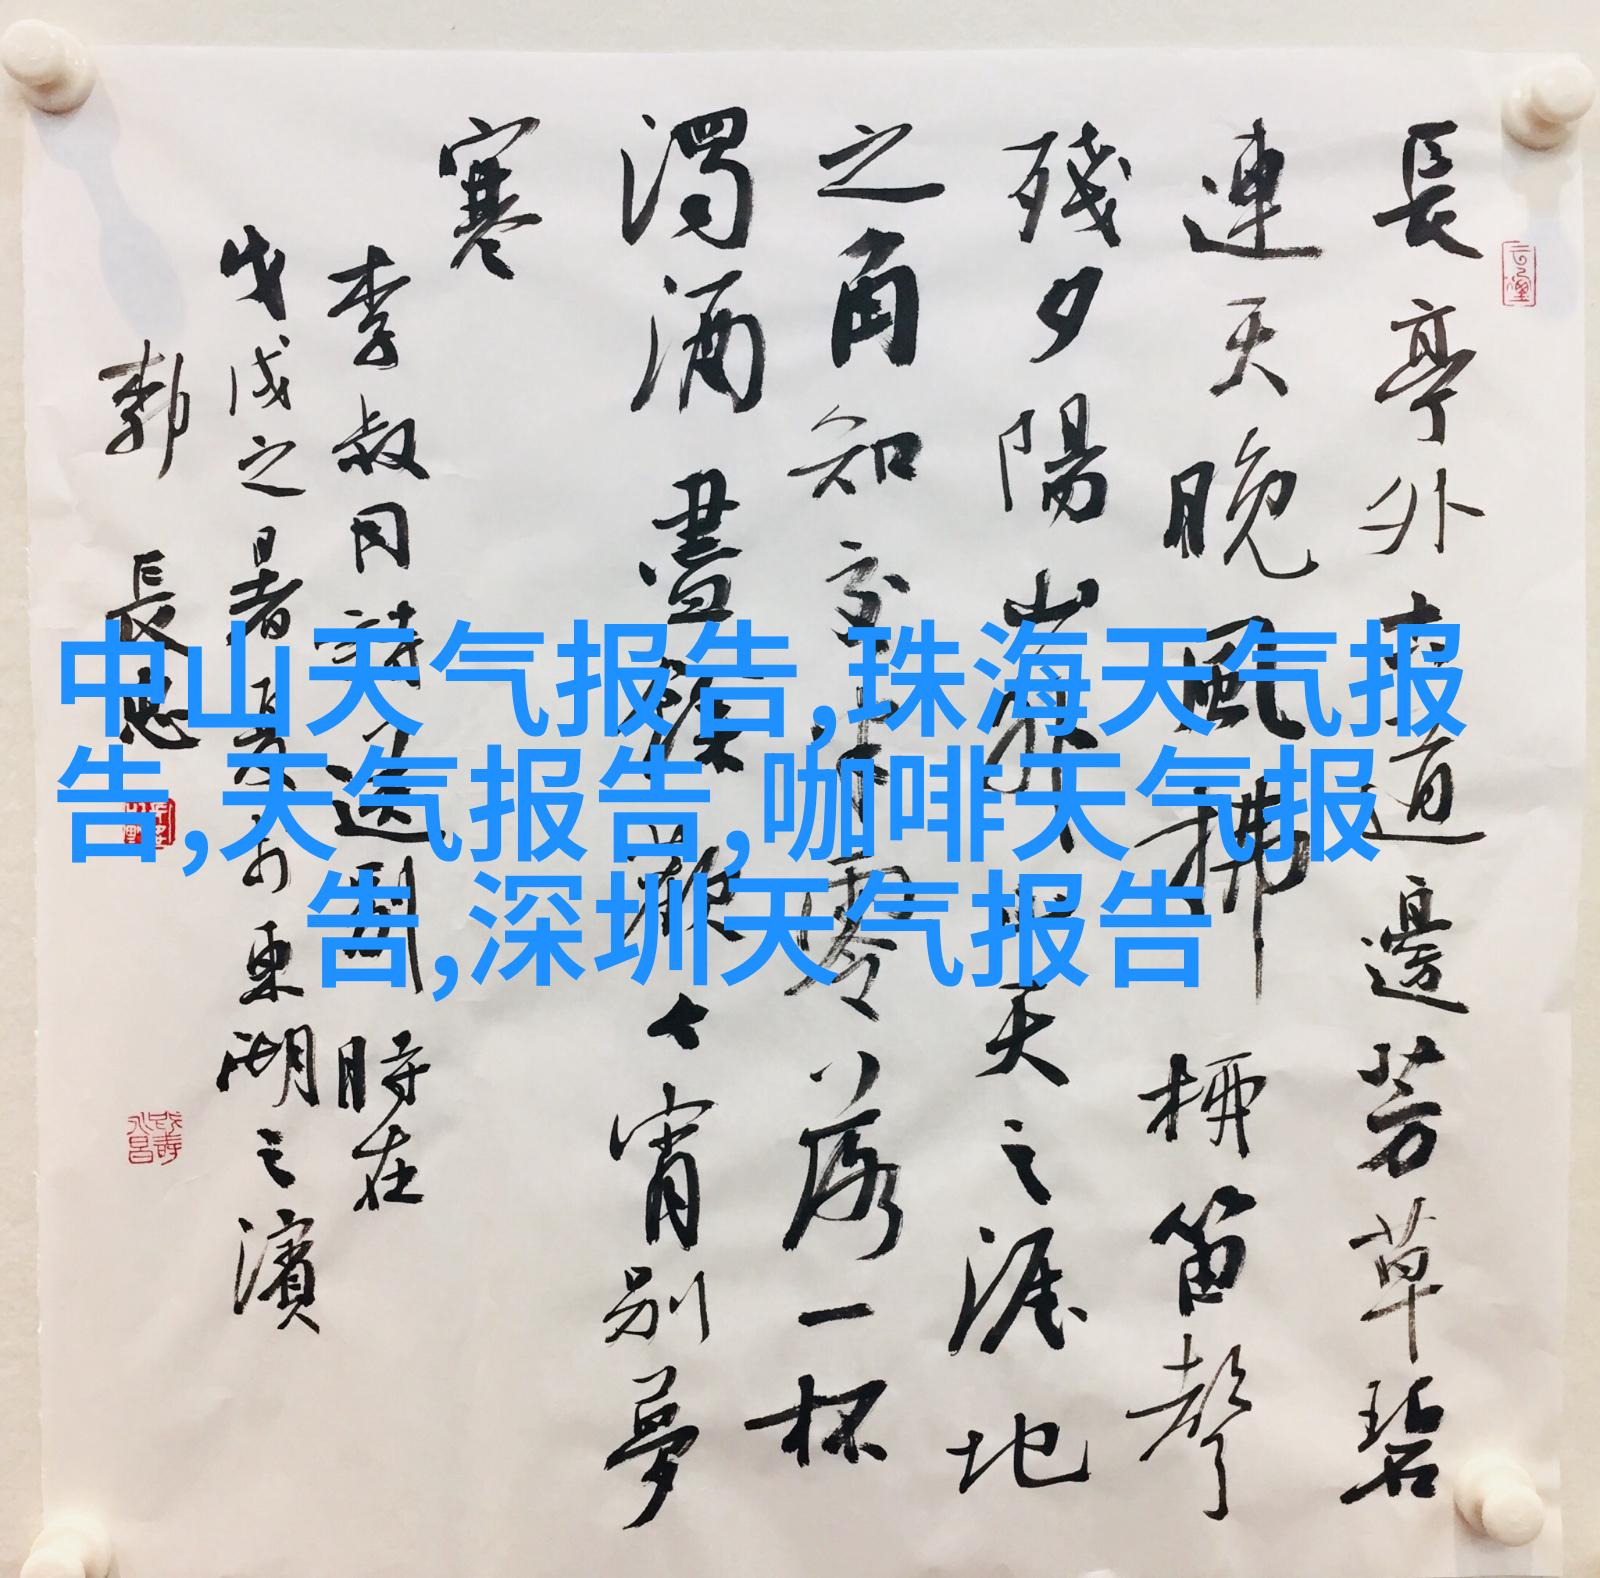 長亭外古道邊芳草碧
連天晚風拂柳笛聲
殘夕陽山外山天之涯地
之角知交半零落一杯
濁酒盡餘歡今宵別夢
寒
李叔同詩送別 時在
戊戌之暑夏於東湖之濱
郭 長
中山天气报告,珠海天气报
告,天气报告,咖啡天气报
告,深圳天气报告